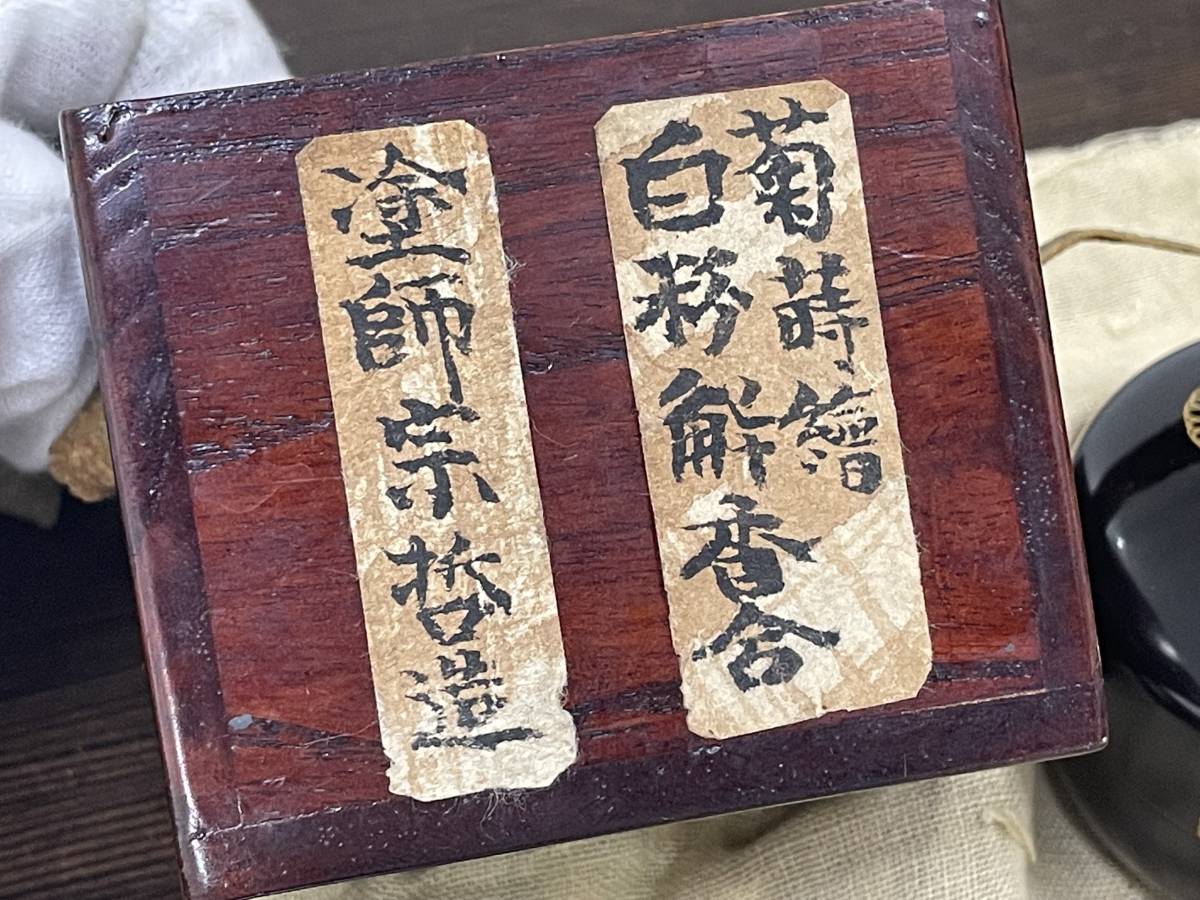 菊蒔繪
白粉解香合
塗師宗哲造